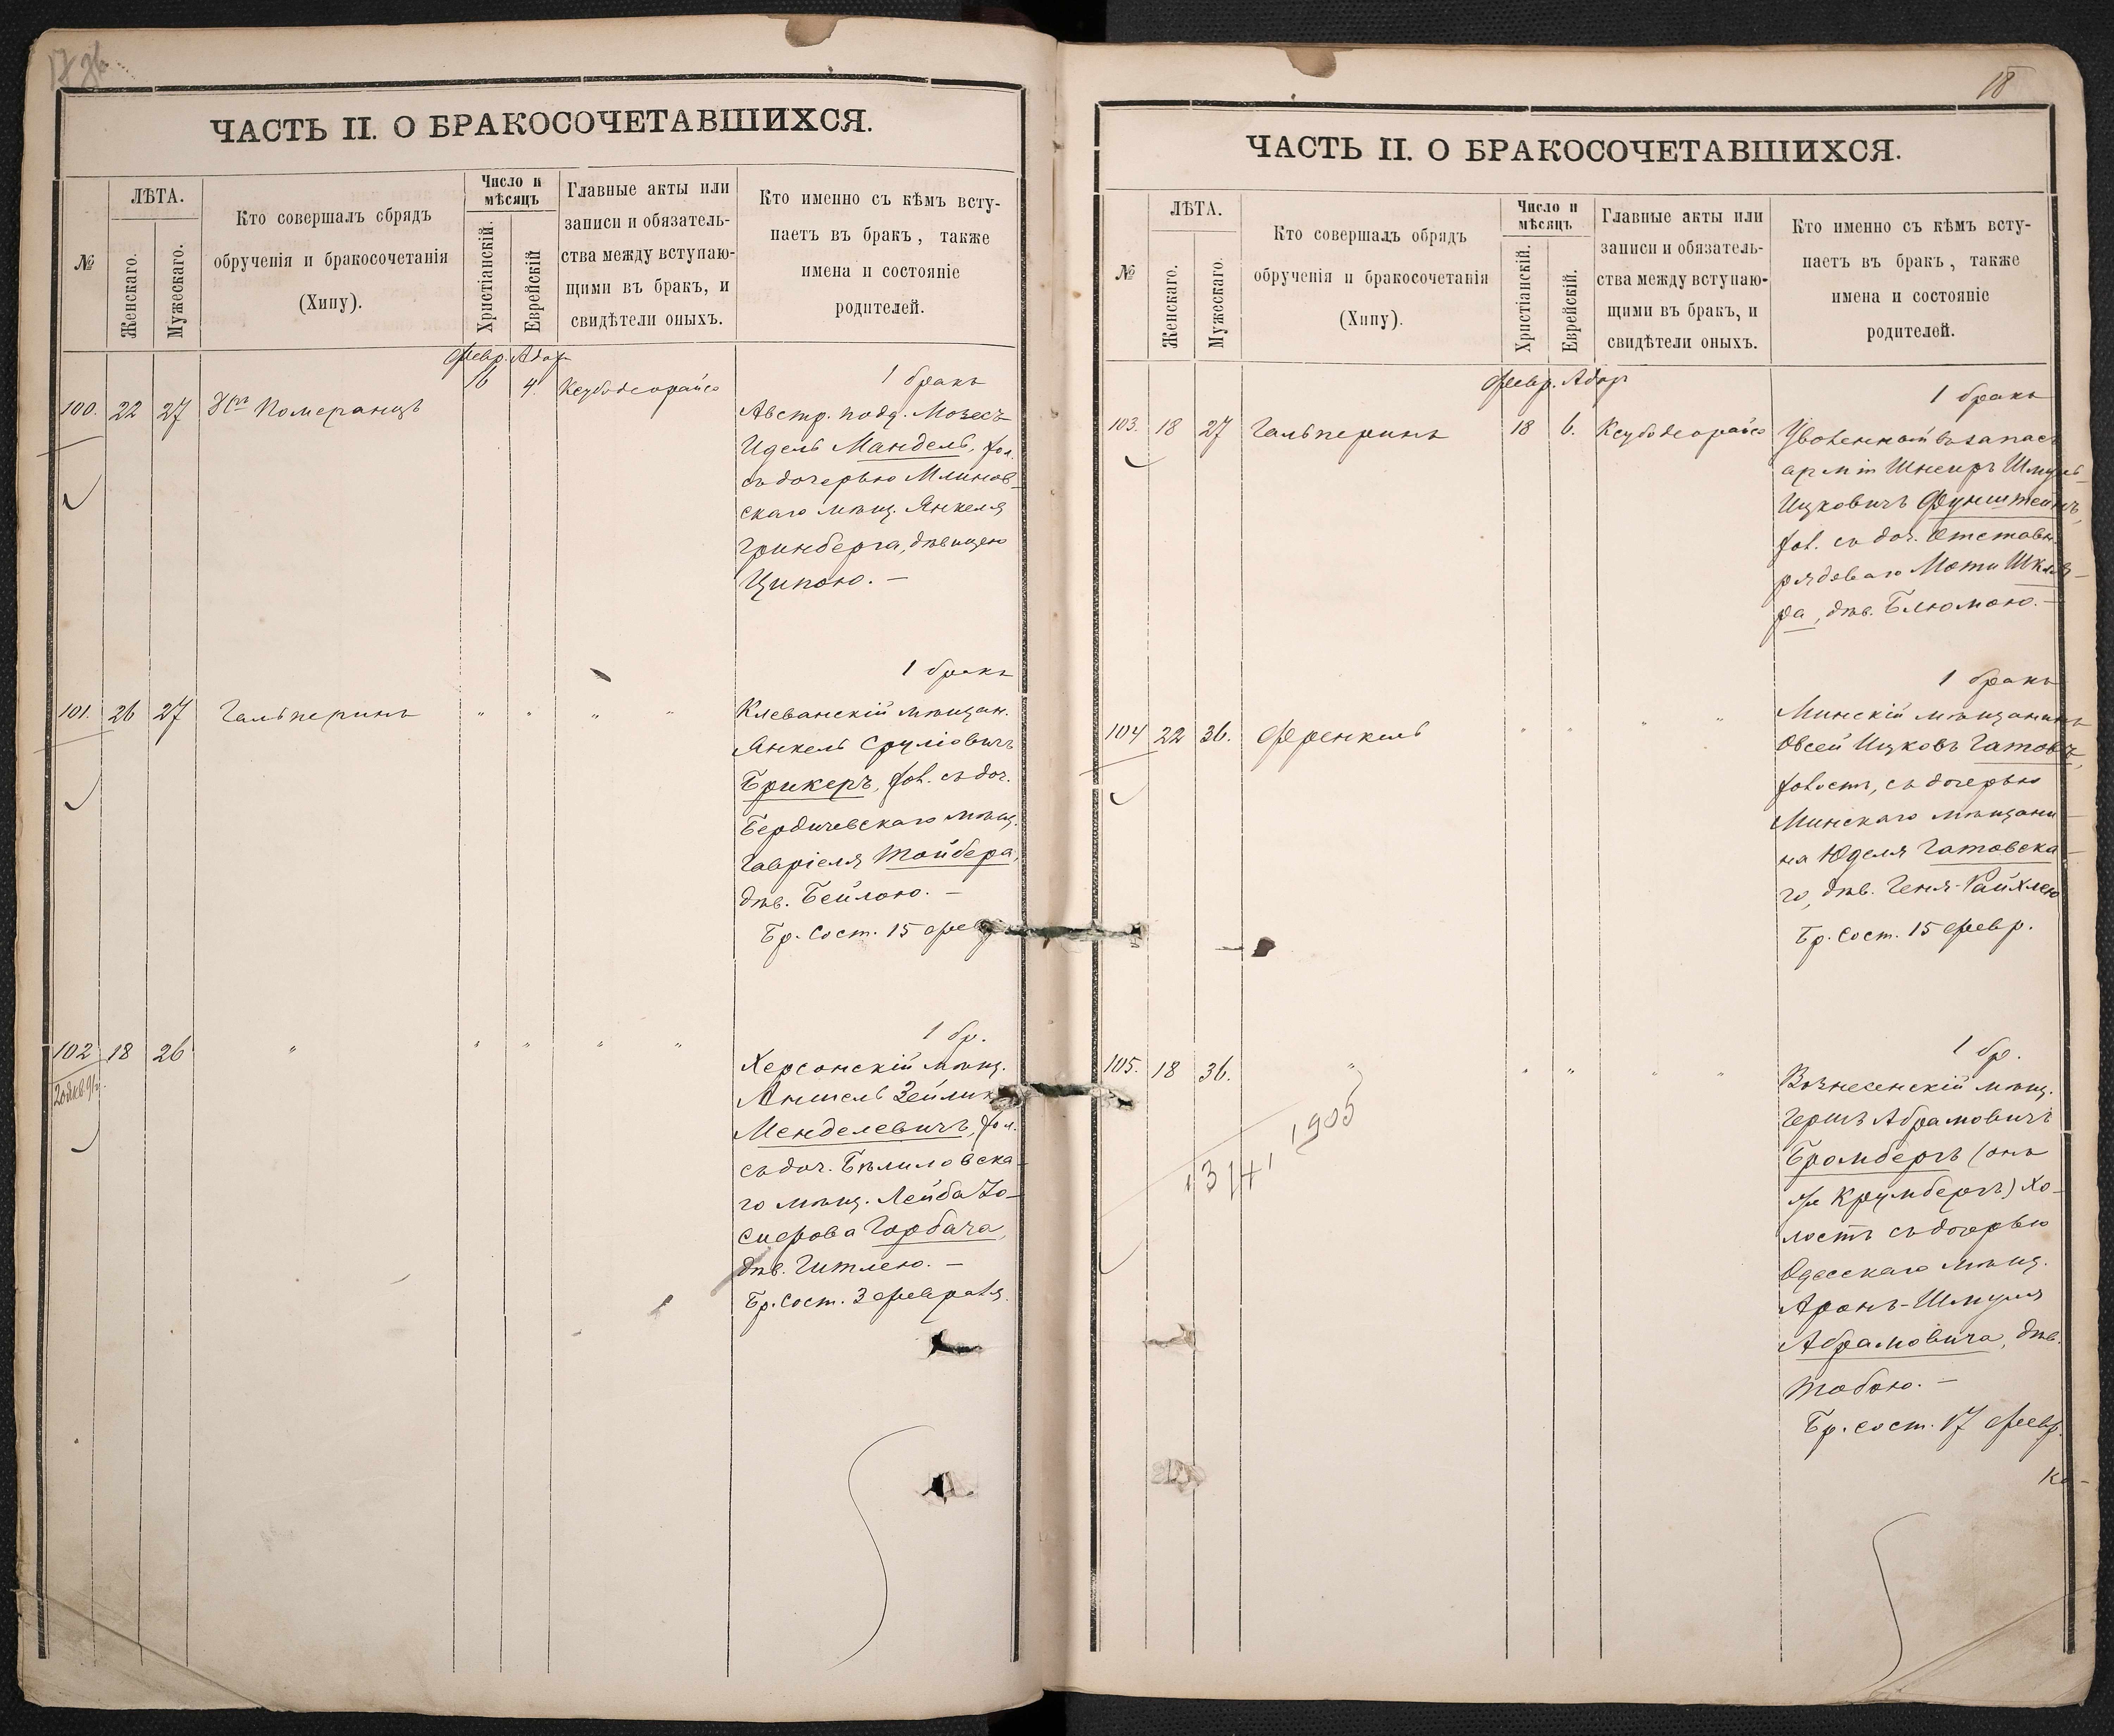 ЧАСТЬ II. О БРАКОСОЧЕТАВШИХСЯ.
№
ЛѢТА.
Женскаго.
Мужескаго.
Кто совершалъ обрядъ
обрученія и бракосочетанія
(Хипу).
Число и
мѣсяцъ
Христіанскій.
Еврейскій
Главные акты или
записи и обязатель-
ства между вступаю-
щими въ бракъ, и
свидѣтели оныхъ.
Кто именно съ кѣмъ всту-
паетъ въ бракъ, также
имена и состояніе
родителей.
Февр. Адар
100. 22 27 Померанцъ 16 4. Ксубодеорайсо
1 бракъ
Австр. подд. Мозесъ
Идель Мандель, хол.
съ дочерью Млинов-
скаго мѣщ. Янкеля
Гринберга, дѣвицею
Ципою. —
101. 26 27 Гальперинъ " " " "
1 бракъ
Клеванскій мѣщан.
Янкель Сруліовичъ
Брикеръ, хол. съ доч.
Бердичевскаго мѣщ.
Гавріеля Тойбера,
дѣв. Бейлою. —
Бр. сост. 15 февр
102 18 26 " " " " "
1 бр.
Херсонскій мѣщ.
Аншель Зейлик
Менделевичъ, хол.
съ доч. Бѣлиловска-
го мѣщ. Лейба Іо-
Горбача,
дѣв. Гитлею. —
Бр. сост. 3 февраля.
18
ЧАСТЬ II. О БРАКОСОЧЕТАВШИХСЯ.
№
ЛѢТА.
Женскаго.
Мужескаго.
Кто совершалъ обрядъ
обрученія и бракосочетанія
(Хипу).
Число и
мѣсяцъ
Христіанскій.
Еврейскій.
Главные акты или
записи и обязатель-
ства между вступаю-
щими въ бракъ, и
свидѣтели оныхъ.
Кто именно съ кѣмъ всту-
паетъ въ бракъ, также
имена и состояніе
родителей.
Февр. Адар
103. 18 27 Гальперинъ 18 6. Ксубодеорайсо
1 бракъ
Уволенный въ запасъ
арміи Шнеиръ Шмуль
Ицковичъ Фунштейнъ,
хол. съ доч. отставн.
рядоваго Моти Шкля-
ра, дѣв. Блюмою. —
104 22 36. Френкель " " " "
1 бракъ
Минскій мѣщанинъ
Овсей Ицковъ Гатовъ,
холостъ, съ дочерью
Минскаго мѣщани-
на Юделя Гатовска-
го, дѣв. Геня-Райхлею
Бр. сост. 15 февр.
105. 18 36. " " " " "
1 бр.
Вознесенскій мѣщ.
Гершъ Абрамовичъ
Бромбергъ (онъ
же Крумбергъ) хо-
лостъ съ дочерью
Одесскаго мѣщ.
Аронъ-Шмуля
Абрамовича, дѣв.
Тобою. —
Бр. сост. 17 февр.
1905
1314